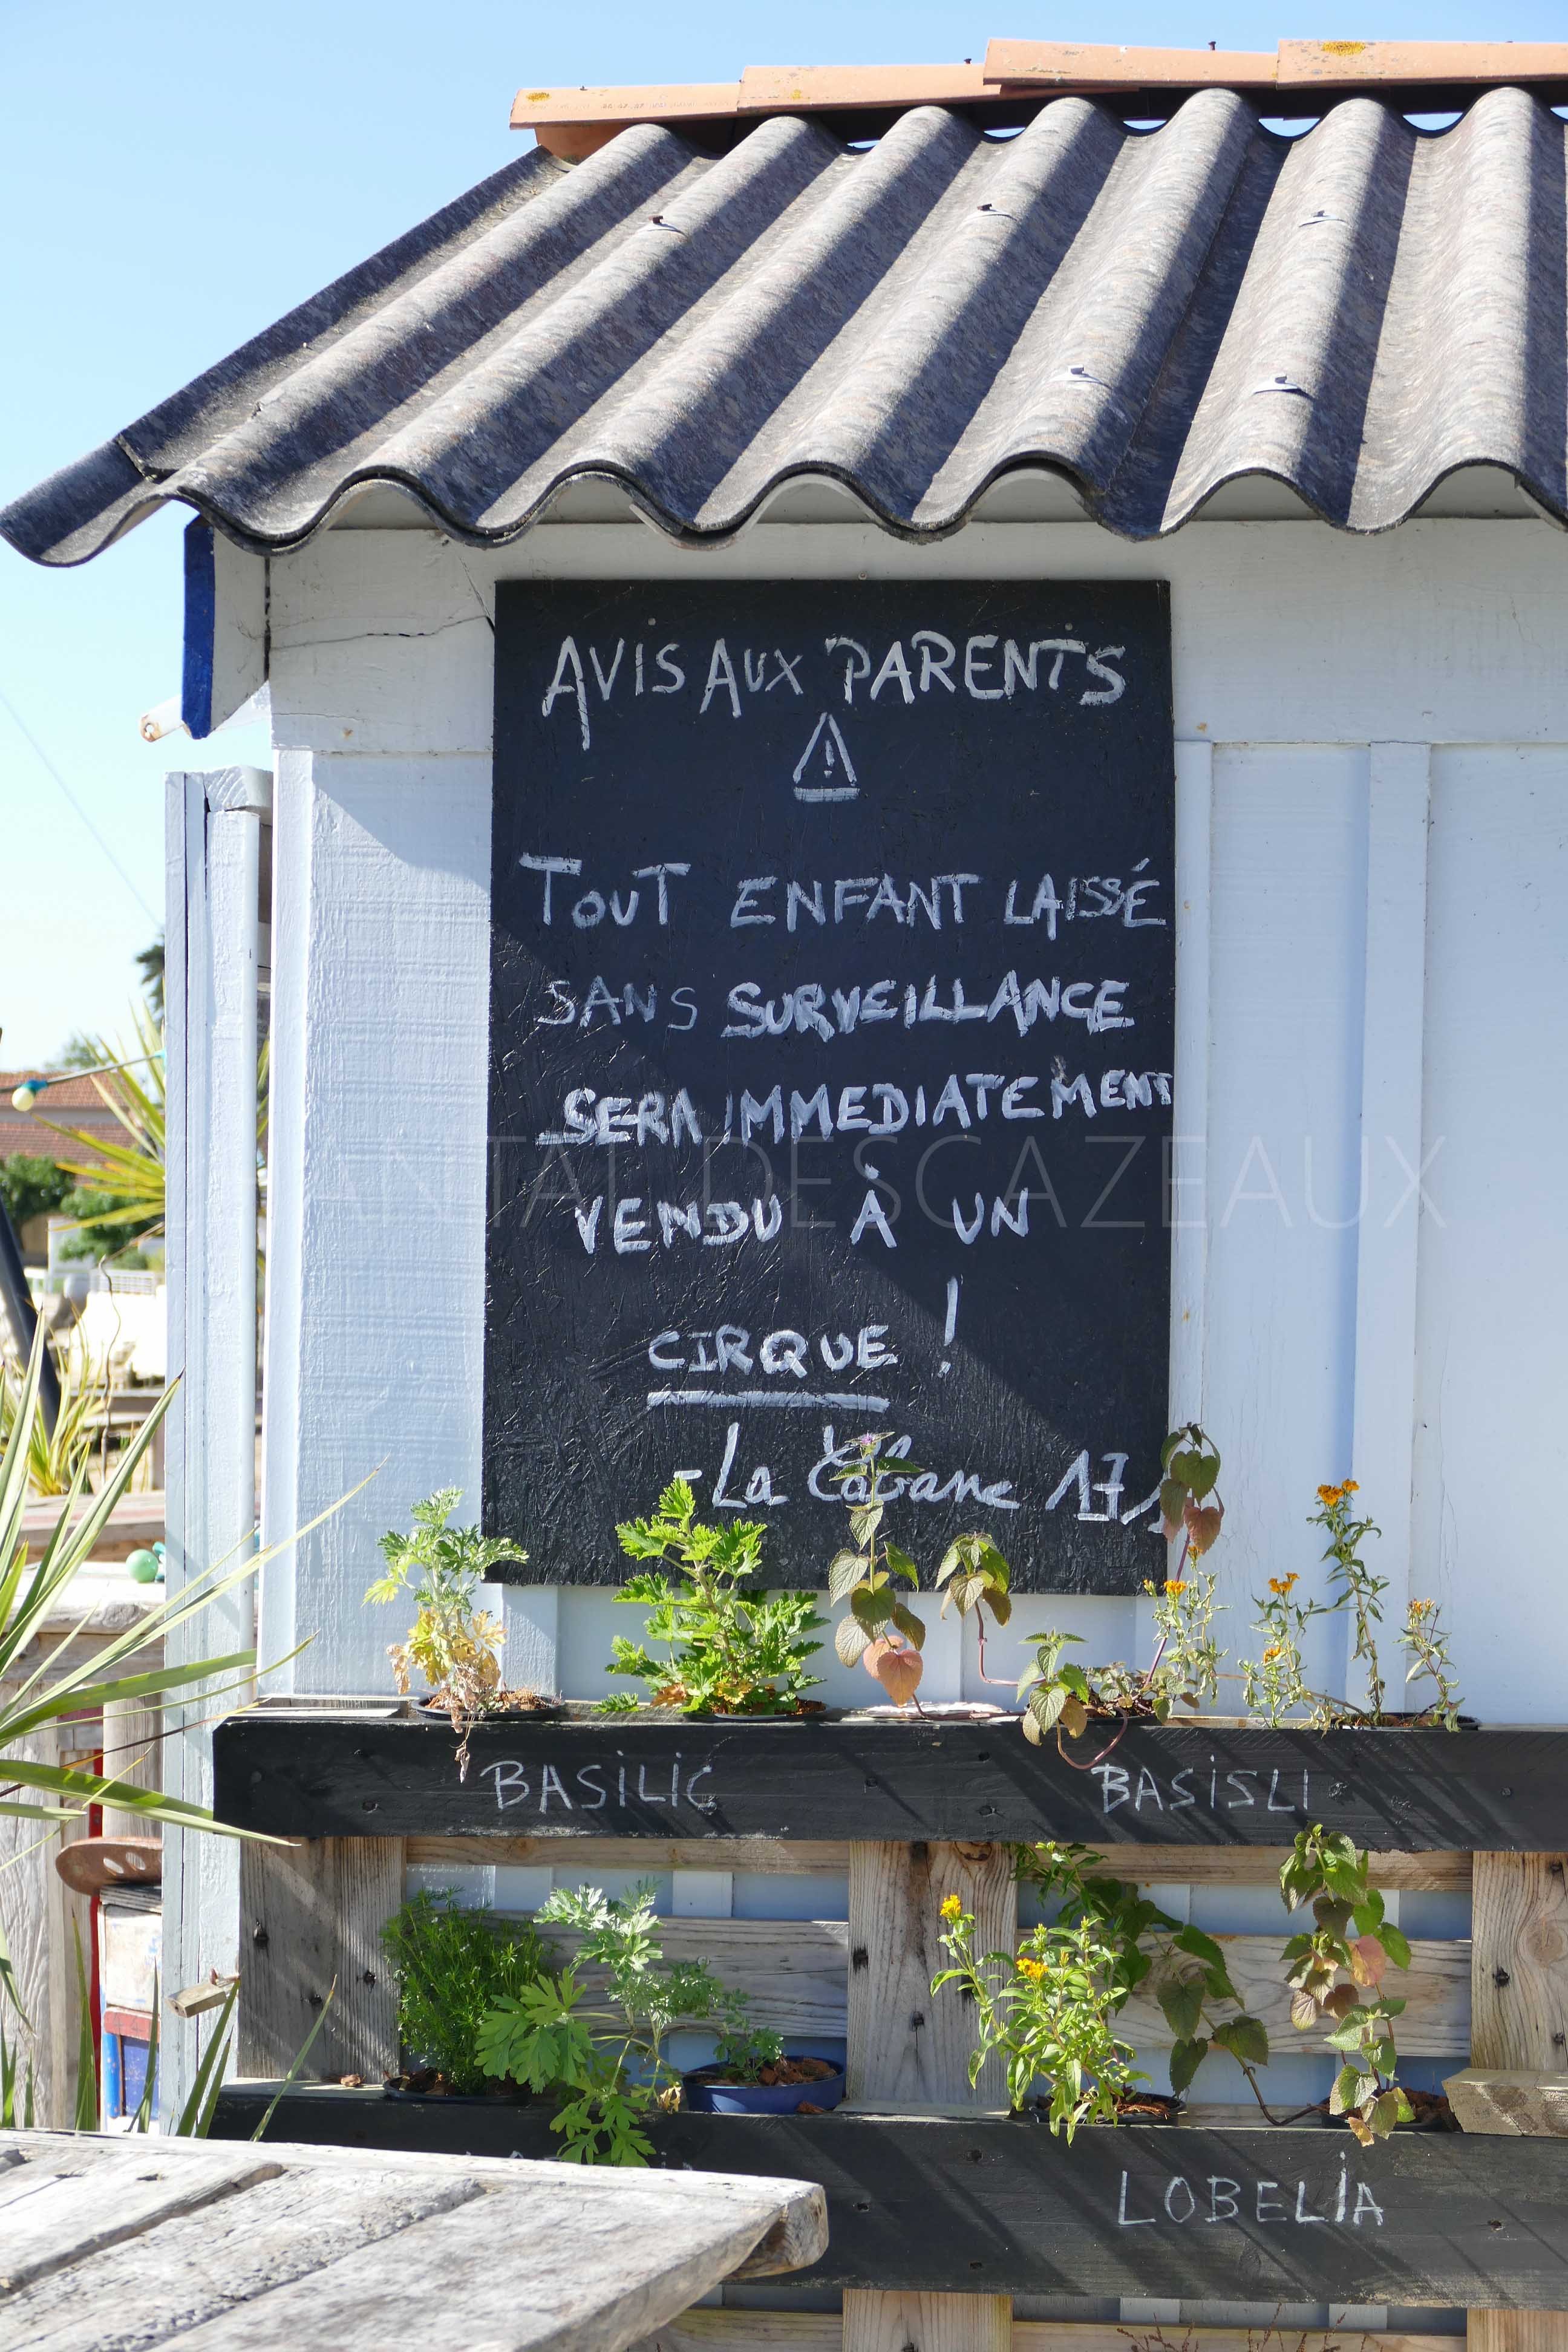 AVIS AUX PARENTS
!
TOUT ENFANT LAISSÉ
SANS SURVEILLANCE
SERA IMMEDIATEMENT
VENDU À UN
CIRQUE !
- La Cabane 171
CHANTAL DESCAZEAUX
BASILIC
BASISLI
LOBELIA